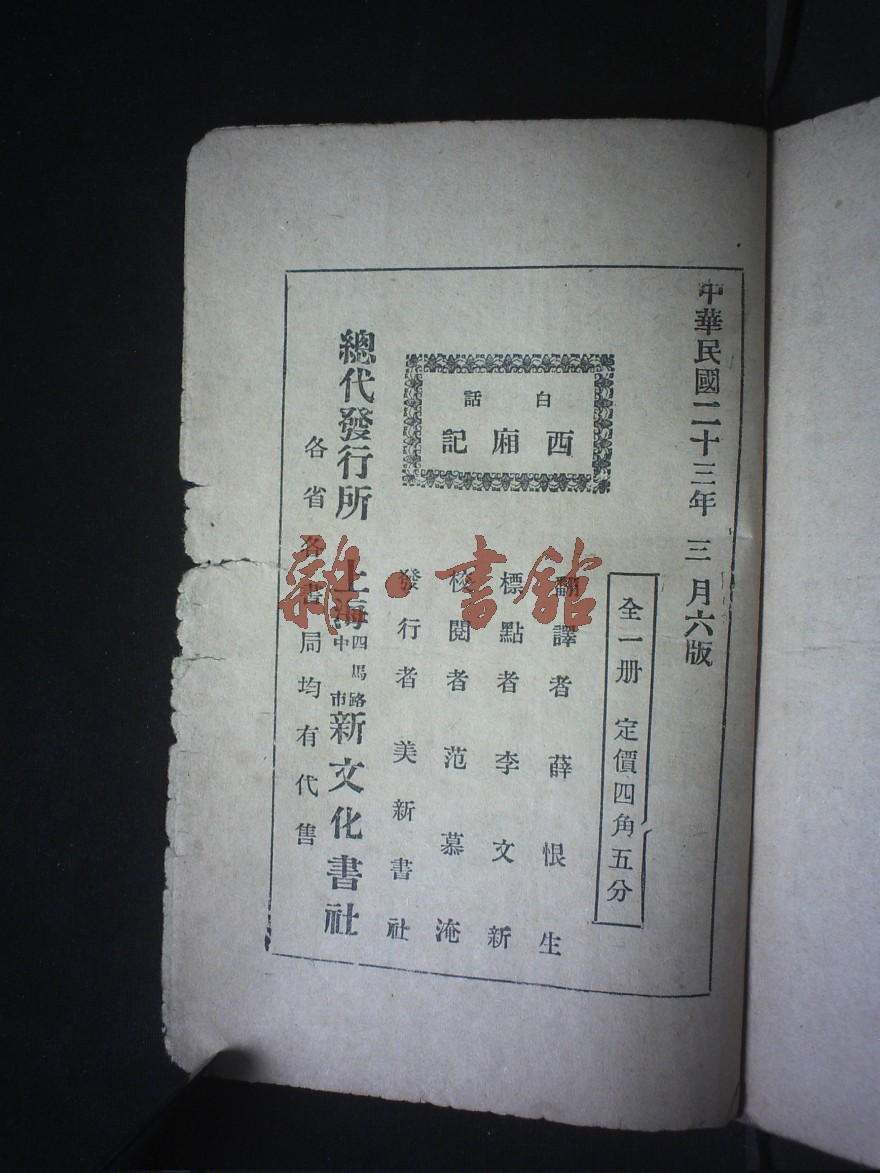 中華民國二十三年 三月六版
全一册 定價四角五分
白話
西廂記
翻譯者 薛恨生
標點者 李文新
校閱者 范慕淹
發行者 美新書社
總代發行所 上海四馬路中市新文化書社
各省各書局均有代售
雜·書館